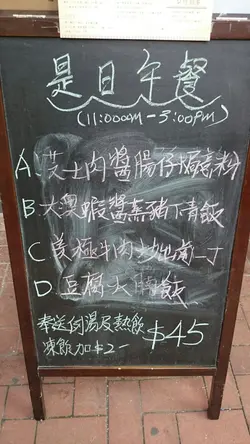 是日午餐
(11:00AM-3:00PM)
A. 芝士肉醬腸仔焗意粉
B. 大澳蝦醬蒸豬 飯
C 美極牛肉炒出前一丁
D. 豆腐火腩飯
奉送例湯及熱飲
凍飲加$2- $45